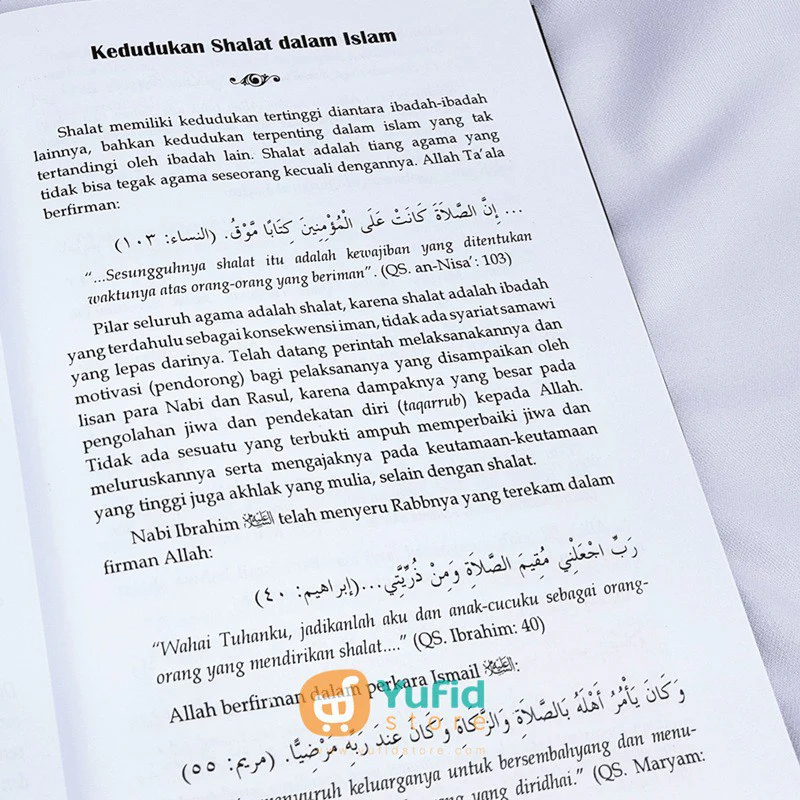 Kedudukan Shalat dalam Islam
Shalat memiliki kedudukan tertinggi diantara ibadah-ibadah
lainnya, bahkan kedudukan terpenting dalam islam yang tak
tertandingi oleh ibadah lain. Shalat adalah tiang agama yang
tidak bisa tegak agama seseorang kecuali dengannya. Allah Ta'ala
berfirman:
... إِنَّ الصَّلاَةَ كَانَتْ عَلَى الْمُؤْمِنِينَ كِتَابًا مَّوْقُ. (النساء: ١٠٣)
"...Sesungguhnya shalat itu adalah kewajiban yang ditentukan
waktunya atas orang-orang yang beriman". (QS. an-Nisa': 103)
Pilar seluruh agama adalah shalat, karena shalat adalah ibadah
yang terdahulu sebagai konsekwensi iman, tidak ada syariat samawi
yang lepas darinya. Telah datang perintah melaksanakannya dan
motivasi (pendorong) bagi pelaksananya yang disampaikan oleh
lisan para Nabi dan Rasul, karena dampaknya yang besar pada
pengolahan jiwa dan pendekatan diri (taqarrub) kepada Allah.
Tidak ada sesuatu yang terbukti ampuh memperbaiki jiwa dan
meluruskannya serta mengajaknya pada keutamaan-keutamaan
yang tinggi juga akhlak yang mulia, selain dengan shalat.
Nabi Ibrahim telah menyeru Rabbnya yang terekam dalam
firman Allah:
رَبِّ اجْعَلْنِي مُقِيمَ الصَّلاَةِ وَمِنْ ذُرِّيَّتِي...(إبراهيم: ٤٠)
"Wahai Tuhanku, jadikanlah aku dan anak-cucuku sebagai orang-
orang yang mendirikan shalat...." (QS. Ibrahim: 40)
Allah berfirman dalam perkara Ismail :
وَكَانَ يَأْمُرُ أَهْلَهُ بِالصَّلاَةِ وَالزَّكَاةِ وَكَانَ عِندَ رَبِّهِ مَرْضِيًّا. (مريم: ٥٥)
menyuruh keluarganya untuk bersembahyang dan menu-
yang diridhai." (QS. Maryam:
YuFid
store
www.yufidstore.com